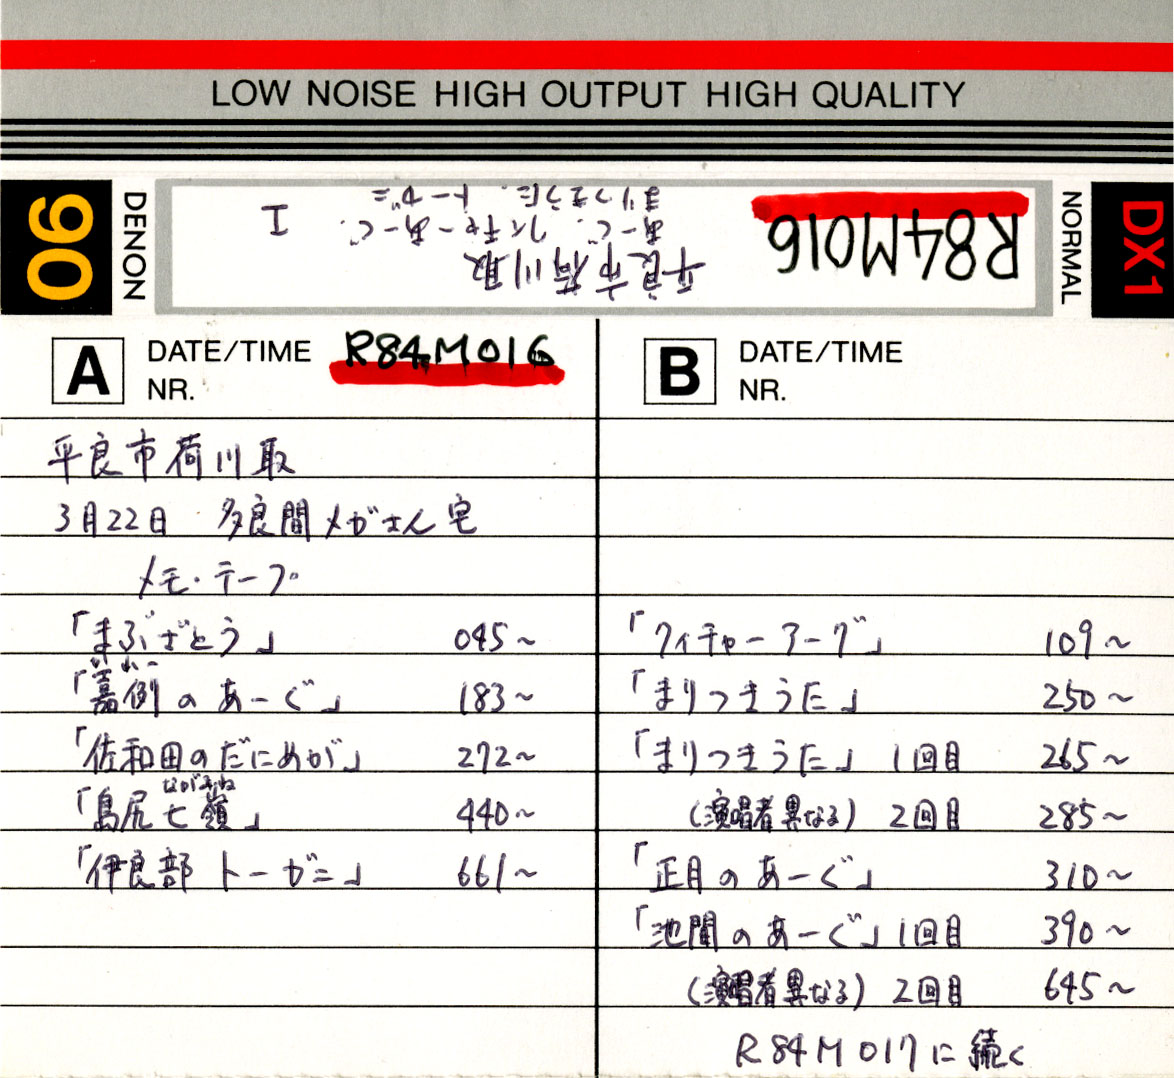 LOW NOISE HIGH OUTPUT HIGH QUALITY
90
DENON
R84M016
平良市荷川取
あーぐ、クィチャーあーぐ、
まりつきうた、トーガニ
I
NORMAL
DX1
A DATE/TIME R84M016
NR.
平良市荷川取
3月22日 多良間メガさん宅
メモ・テープ
「まぶざとう」 045~
「嘉例のあーぐ」 183~
「佐和田のだにめが」 272~
ながみね
「島尻七嶺」 440~
「伊良部トーガニ」 661~
B DATE/TIME
NR.
「クィチャーアーグ」 109~
「まりつきうた」 250~
「まりつきうた」1回目 265~
(演唱者異なる) 2回目 285~
「正月のあーぐ」 310~
「池間のあーぐ」1回目 390~
(演唱者異なる) 2回目 645~
R84M017に続く